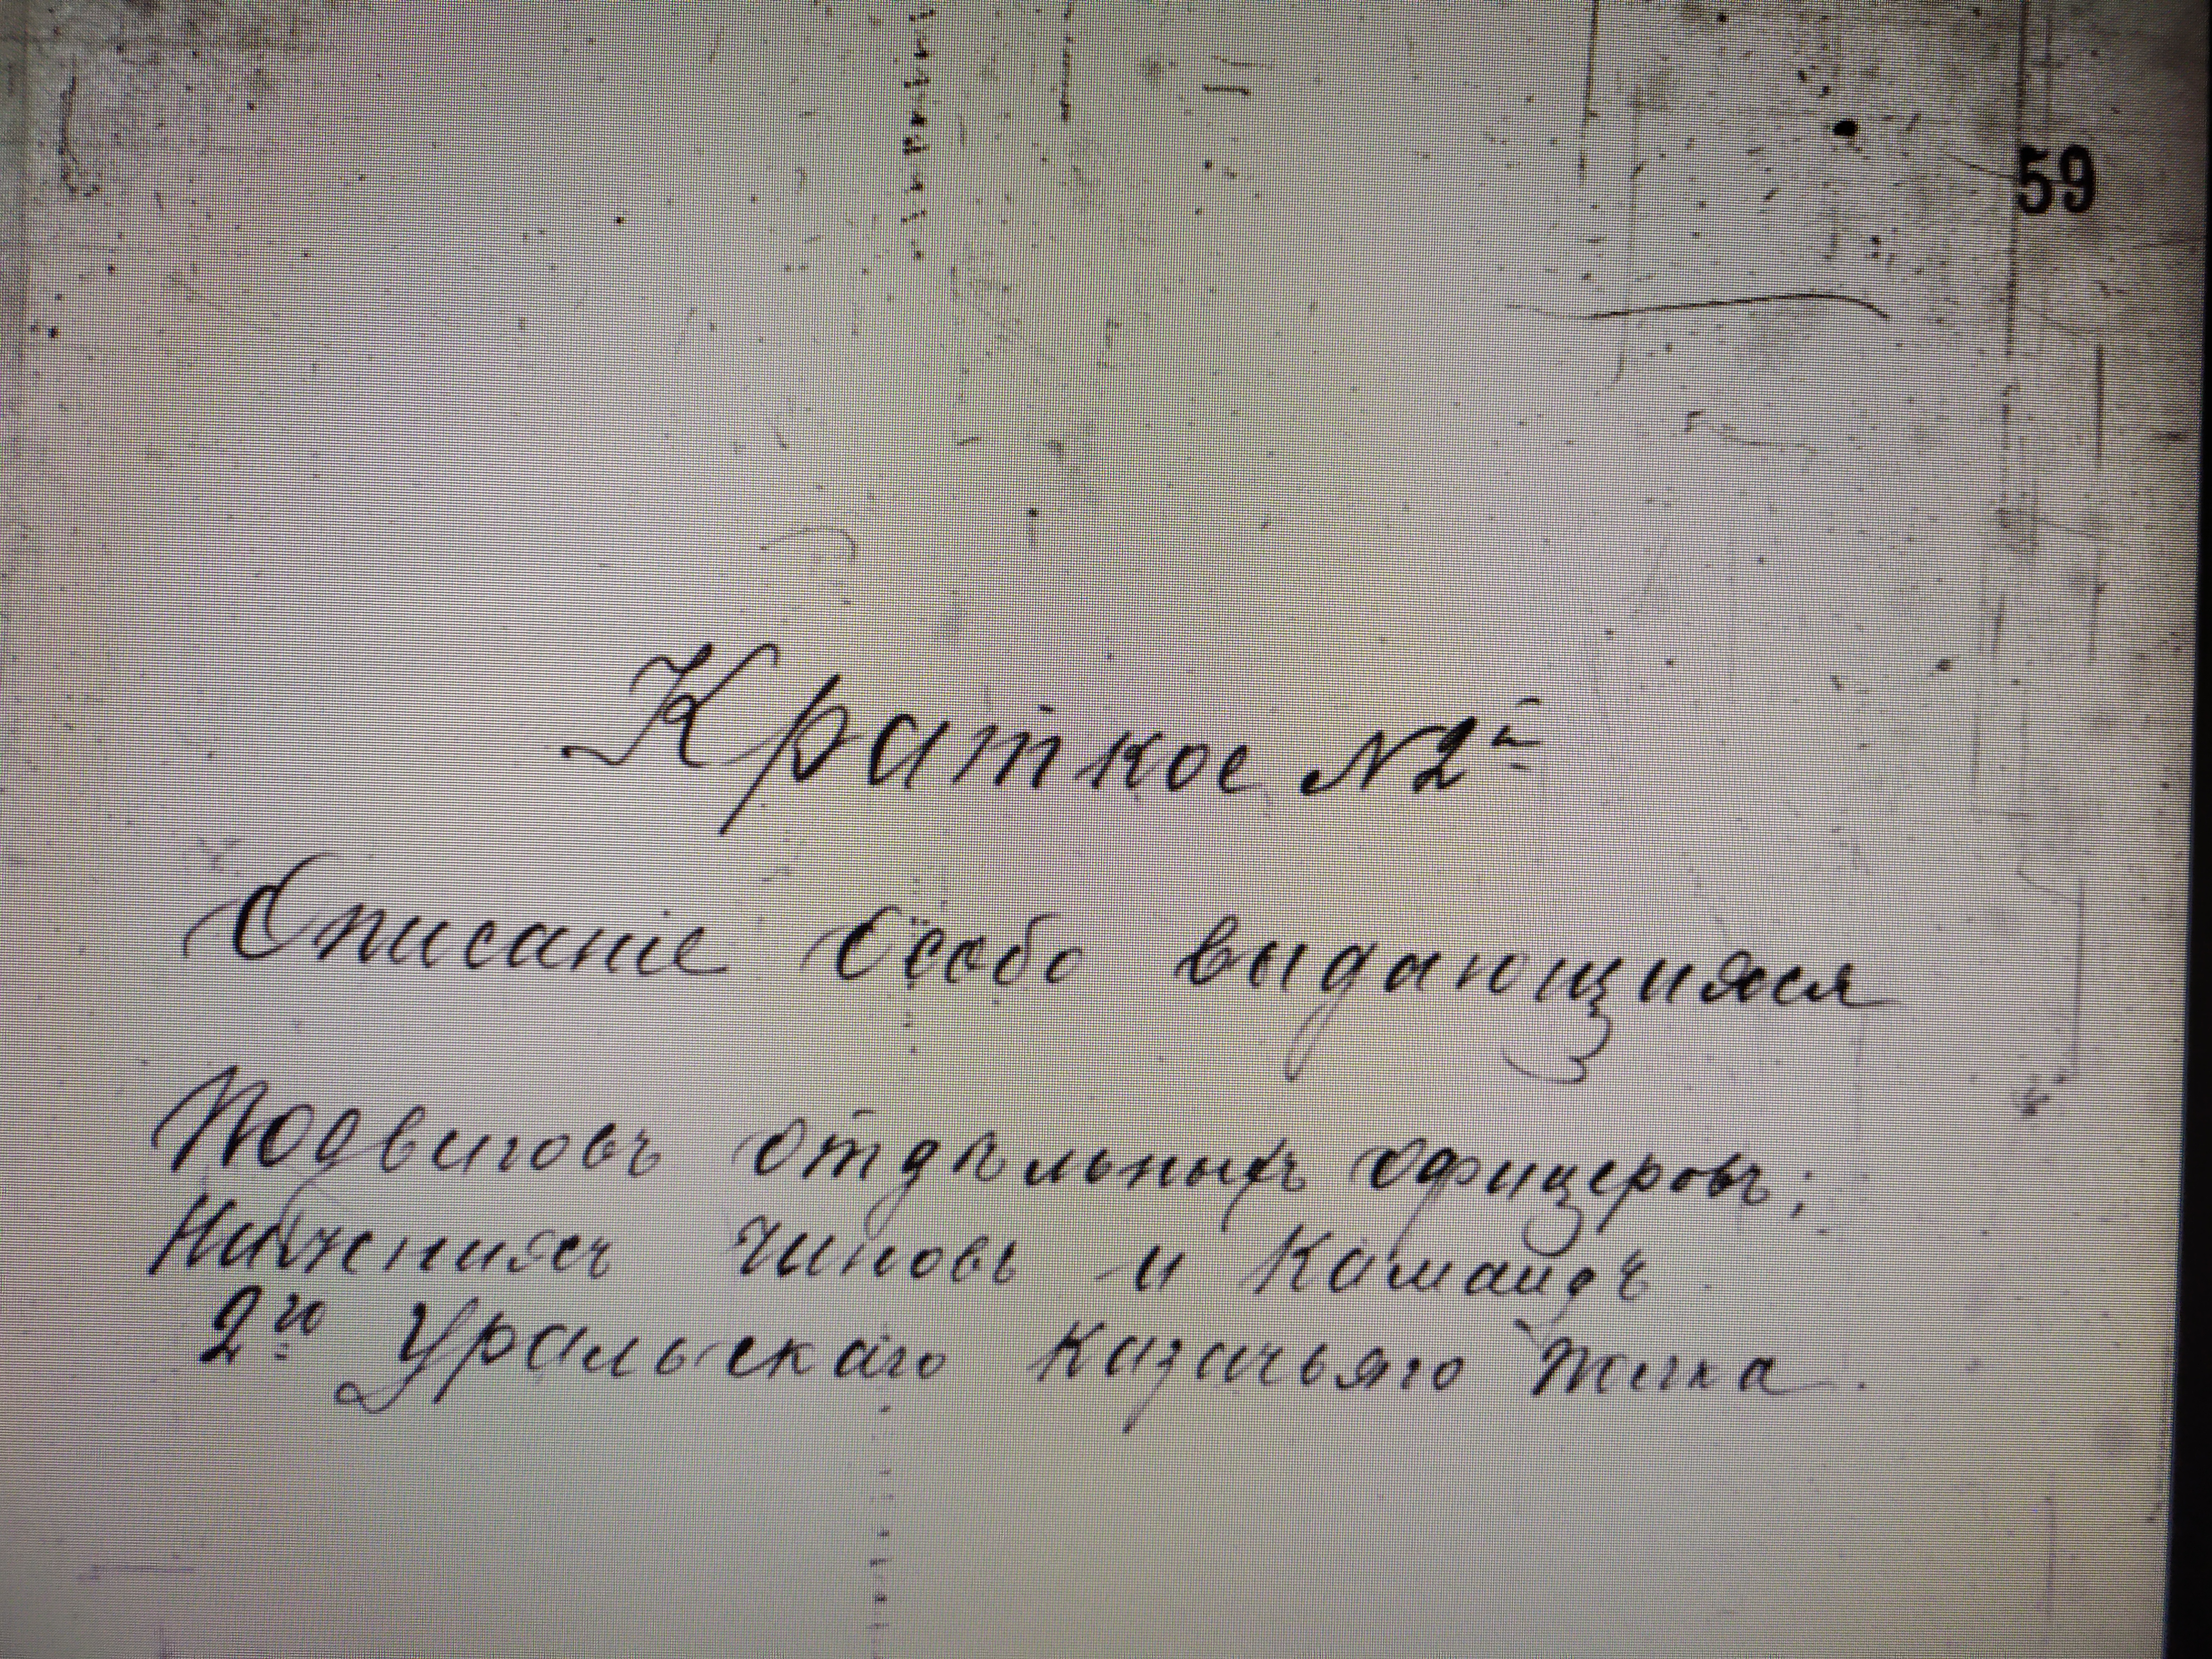 59
Краткое №2й
Описаніе Особо выдающихся
Подвиговъ отдѣльныхъ офицеровъ;
Нижнихъ Чиновъ и Командъ
2го Уральскаго Казачьяго Полка.